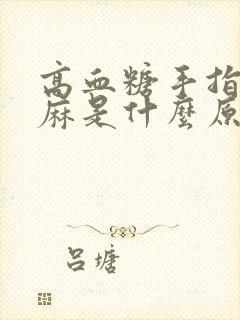 高血糖手指
麻是什麼原
吕塘